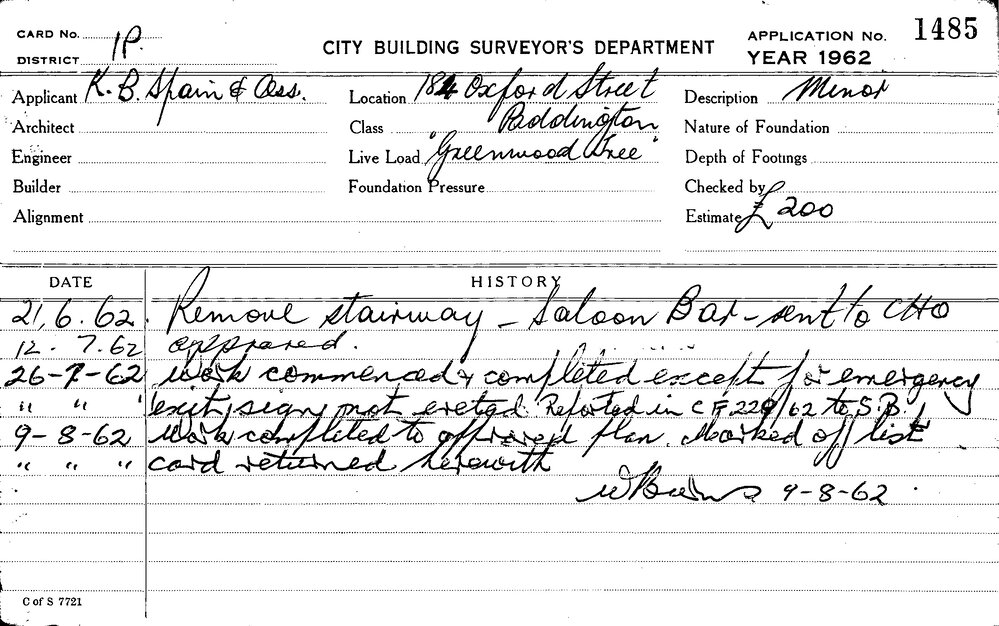 CARD No.
DISTRICT 1P.
CITY BUILDING SURVEYOR'S DEPARTMENT
APPLICATION No. 1485
YEAR 1962
Applicant K. B. Spain & Ass.
Location 184 Oxford Street
Description Minor
Architect
Class Paddington
Nature of Foundation
Engineer
Live Load "Greenwood Tree"
Depth of Footings
Builder
Foundation Pressure
Checked by
Alignment
Estimate £200
DATE HISTORY
21.6.62. Remove stairway - Saloon Bar - sent to CHO
12.7.62 approved.
26-7-62 Work commenced & completed except for emergency
" " " exit sign not erected. Reported in CF 229/62 to S.B.
9-8-62 Work completed to approved plan. Marked off list
" " " card returned herewith
9-8-62.
C of S 7721